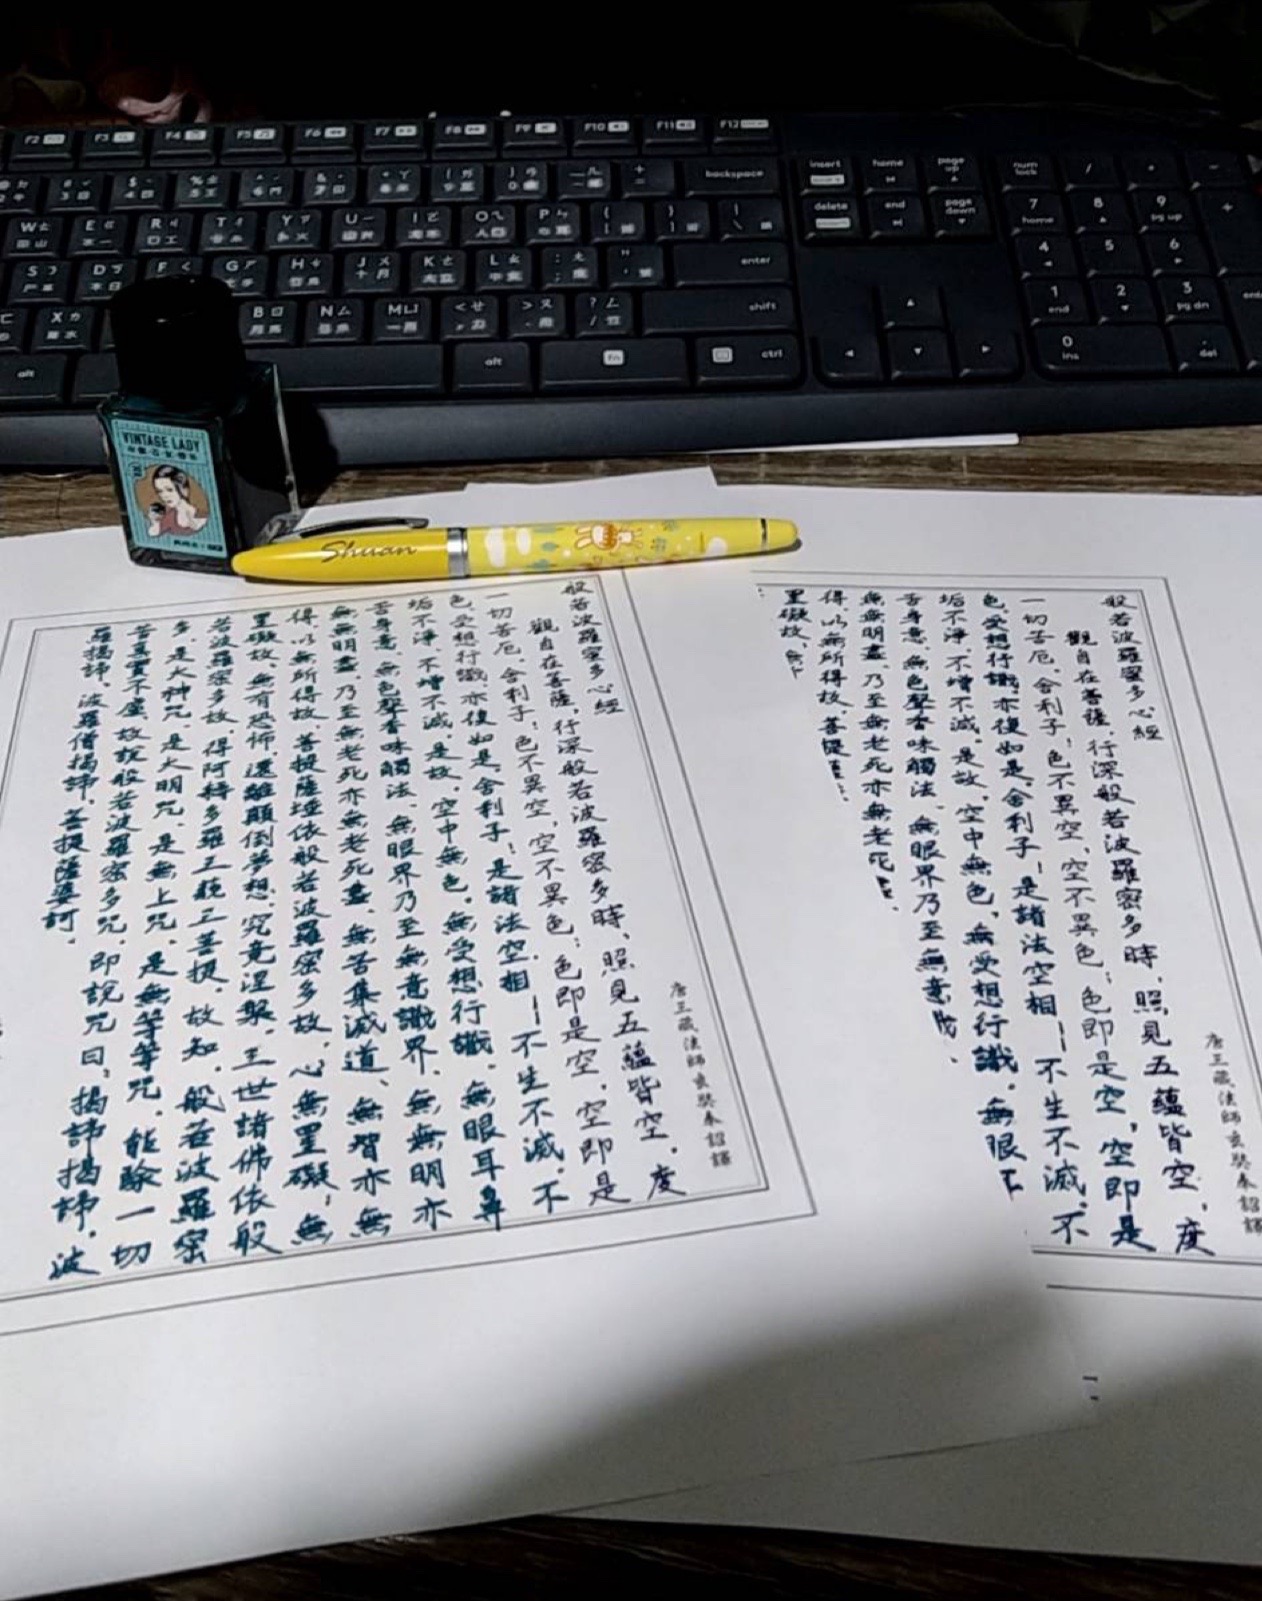 般若波羅蜜多心經
唐三藏法師玄奘奉詔譯
觀自在菩薩，行深般若波羅蜜多時，照見五蘊皆空，度
一切苦厄。舍利子！色不異空，空不異色；色即是空，空即是
色。受想行識，亦復如是。舍利子！是諸法空相——不生不滅，不
垢不淨，不增不減。是故，空中無色，無受想行識，無眼耳鼻
舌身意，無色聲香味觸法，無眼界乃至無意識界，無無明亦
無無明盡，乃至無老死亦無老死盡，無苦集滅道，無智亦無
得，以無所得故，菩提薩埵依般若波羅蜜多故，心無罣礙；無
罣礙故，無有恐怖，遠離顛倒夢想，究竟涅槃。三世諸佛依般
若波羅蜜多故，得阿耨多羅三藐三菩提。故知，般若波羅密
多，是大神咒，是大明咒，是無上咒，是無等等咒，能除一切
苦，真實不虛，故說般若波羅蜜多咒，即說咒曰，揭諦揭諦，波
羅揭諦，波羅僧揭諦，菩提薩婆訶。
般若波羅蜜多心經
唐三藏法師玄奘奉詔譯
觀自在菩薩，行深般若波羅蜜多時，照見五蘊皆空，度
一切苦厄。舍利子！色不異空，空不異色；色即是空，空即是
色。受想行識，亦復如是。舍利子！是諸法空相——不生不滅，不
垢不淨，不增不減。是故，空中無色，無受想行識，無眼
舌身意，無色聲香味觸法，無眼界乃至無意
無無明盡，乃至無老死亦無老死
得，以無所得故，菩提
罣礙故，無
Shuan
VINTAGE LADY
F2 F3 F4 F5 F6 F7 F8 F9 F10 F11 F12
backspace insert home page up num lock / * -
W E R T Y U I O P delete end page down 7 home 8 9 pg up +
S D F G H J K L enter 4 5 6
X B N M shift 1 end 2 3 pg dn
alt alt fn ctrl 0 ins . del